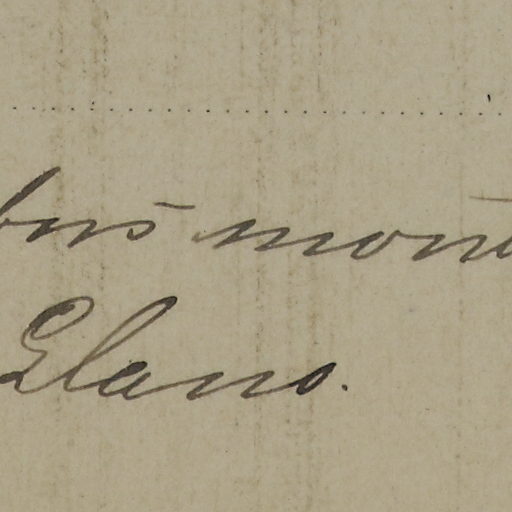 bus mon
Elans.